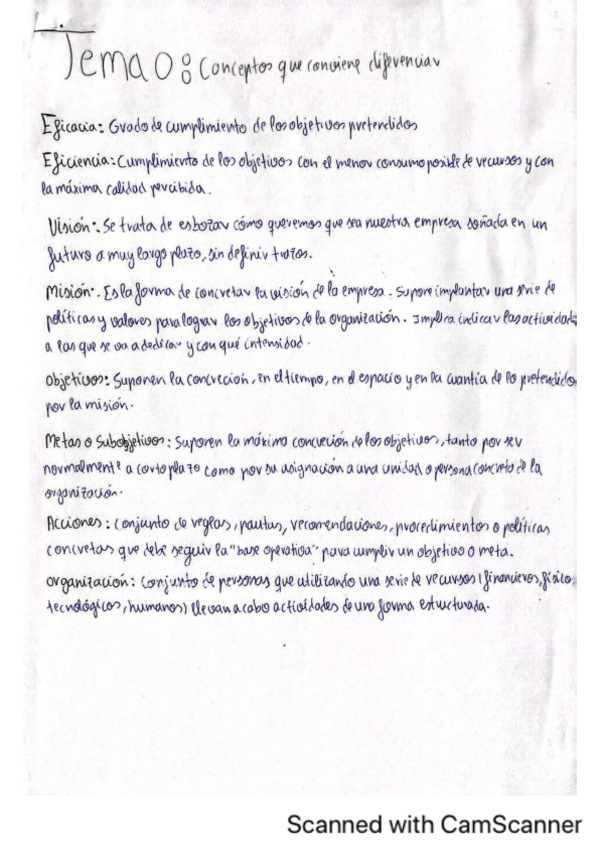 Tema 0: Conceptos que conviene diferenciar
Eficacia: Grado de cumplimiento de los objetivos pretendidos
Eficiencia: Cumplimiento de los objetivos con el menor consumo posible de recursos y con
la máxima calidad percibida.
Visión: Se trata de esbozar cómo queremos que sea nuestra empresa soñada en un
futuro a muy largo plazo, sin definir trazos.
Misión: Es la forma de concretar la visión de la empresa. Supone implantar una serie de
políticas y valores para lograr los objetivos de la organización. Implica indicar las actividades
a las que se va a dedicar y con qué intensidad.
Objetivos: Suponen la concreción, en el tiempo, en el espacio y en la cuantía de lo pretendido
por la misión.
Metas o Subobjetivos: Suponen la máxima concreción de los objetivos, tanto por ser
normalmente a corto plazo como por su asignación a una unidad o persona concreta de la
organización.
Acciones: Conjunto de reglas, pautas, recomendaciones, procedimientos o políticas
concretas que debe seguir la "base operativa" para cumplir un objetivo o meta.
Organización: Conjunto de personas que utilizando una serie de recursos (financieros, físico
tecnológicos, humanos) llevan a cabo actividades de una forma estructurada.
Scanned with CamScanner